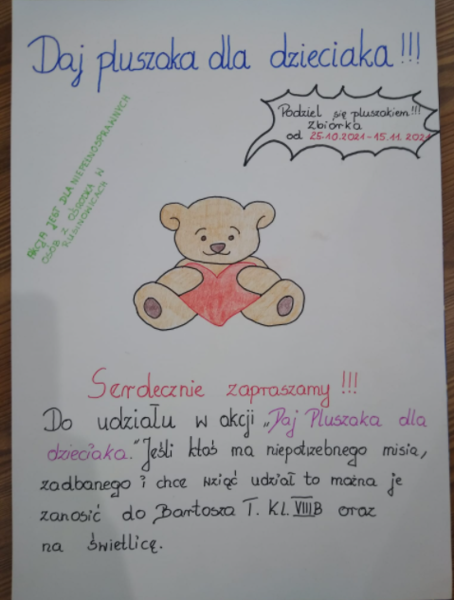 Daj pluszaka dla dzieciaka!!!
Podziel się pluszakiem!!!
Zbiórka
od 25.10.2021-15.11.2021
AKCJA JEST DLA NIEPEŁNOSPRAWNYCH
OSÓB Z OŚRODKA W
RUDINOWICACH
Serdecznie zapraszamy!!!
Do udziału w akcji „Daj Pluszaka dla
dzieciaka." Jeśli ktoś ma niepotrzebnego misia,
zadbanego i chce wziąć udział to można je
zanosić do Bartosza T. Kl. VIII B oraz
na świetlicę.